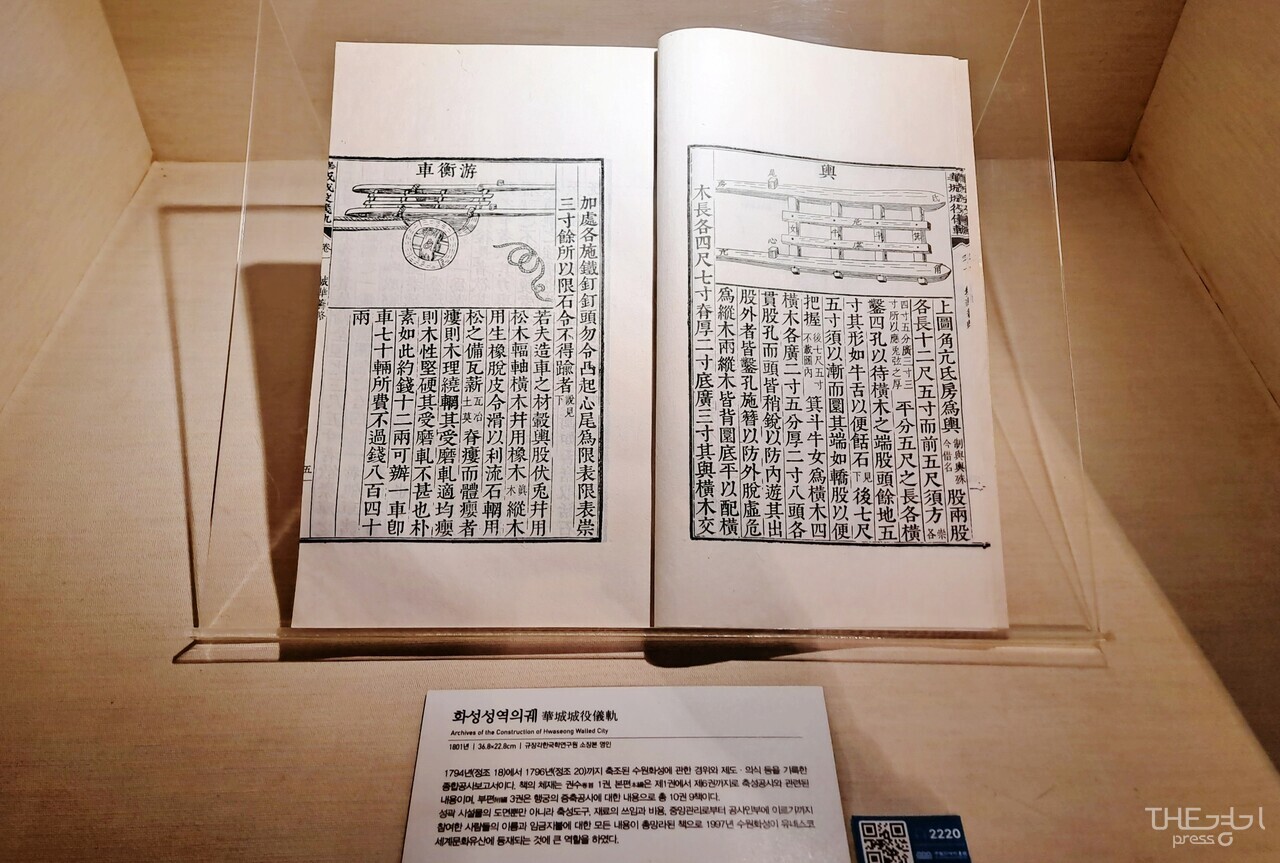 輿
華城城役儀軌
上圖角亢氐房爲輿 制與輿殊今借名 股兩股
各長十二尺五寸而前五尺須方 各崇
四寸五分廣三寸三寸所以應先弦之厚 平分五尺之長各橫
鑿四孔以待橫木之端股頭餘地五
寸其形如牛舌以便餂石 見下 後七尺
五寸須以漸而圜其端如轎股以便
把握 後七尺五寸不載圖內 箕斗牛女爲橫木四
橫木各廣二寸五分厚二寸八頭各
貫股孔而頭皆稍銳以防內遊其出
股外者皆鑿孔施簪以防外脫虛危
爲縱木兩縱木皆背圜底平以配橫
木長各四尺七寸脊厚二寸底廣三寸其與橫木交
加處各施鐵釘釘頭勿令凸起心尾爲限表限表崇
三寸餘所以限石令不得踰者 說見下
游衡車
若夫造車之材轂輿股伏兎幷用
松木輻軸橫木幷用橡木 眞木 縱木
用生橡脫皮令滑以利流石輞用
松之備瓦薪 瓦冶土莫 脊癭而體癭者
癭則木理繞輞其受磨軋適均癭
則木性堅硬其受磨軋不甚也朴
素如此約錢十二兩可辦一車卽
車七十輛所費不過錢八百四十
兩
五
화성성역의궤 華城城役儀軌
Archives of the Construction of Hwaseong Walled City
1801년 | 36.8×22.8cm | 규장각한국학연구원 소장본 영인
1794년(정조 18)에서 1796년(정조 20)까지 축조된 수원화성에 관한 경위와 제도·의식 등을 기록한
종합공사보고서이다. 책의 체재는 권수卷首 1권, 본편本編은 제1권에서 제6권까지로 축성공사와 관련된
내용이며, 부편附編 3권은 행궁의 증축공사에 대한 내용으로 총 10권 9책이다.
성곽 시설물의 도면뿐만 아니라 축성도구, 재료의 쓰임과 비용, 중앙관리로부터 공사인부에 이르기까지
참여한 사람들의 이름과 임금지불에 대한 모든 내용이 총망라된 책으로 1997년 수원화성이 유네스코
세계문화유산에 등재되는 것에 큰 역할을 하였다.
2220
THE경기
press